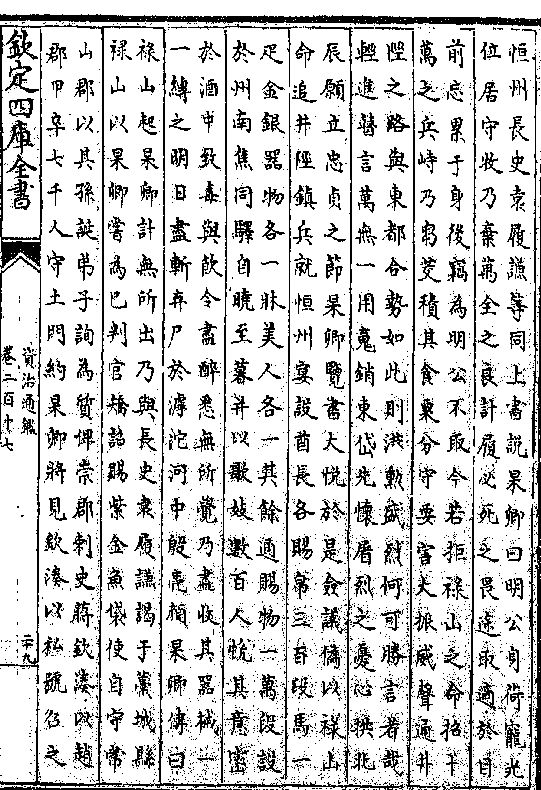 恒州長史袁履謙等同上書說杲卿曰明公身荷寵光
位居守牧乃棄萬全之良計履必死之畏途取適於目
前忘累于身後竊為明公不取今若拒祿山之命招十
萬之兵峙乃芻茭積其食粟分守要害大振威聲通井
陘之路與東都合勢如此則洪勲盛烈何可勝言者哉
輕進瞽言萬無一用魂銷東岱先懷屠烈之憂心拱北
辰願立忠貞之節杲卿覽書大悅於是僉議僞以祿山
命追井陘鎮兵就恒州宴設酋長各賜帛三百段馬一
疋金銀器物各一牀美人各一其餘通賜物一萬段設
於州南焦同驛自曉至暮并以歌妓數百人悅其意密
於酒中致毒與飲令盡醉悉無所覺乃盡收其器械一
一縛之明日盡斬弃尸於滹沱河中殷亮顔杲卿傳曰
祿山起杲卿計無所出乃與長史袁履謙謁于藁城縣
祿山以杲卿嘗為已判官矯詔賜紫金魚袋使自守常
山郡以其孫誕弟子詢為質俾崇郡刺史蔣欽湊以趙
郡甲卒七千人守土門約杲卿將見欽湊以私號召之
欽定四庫全書
資治通鑑
卷二百十七
二十九